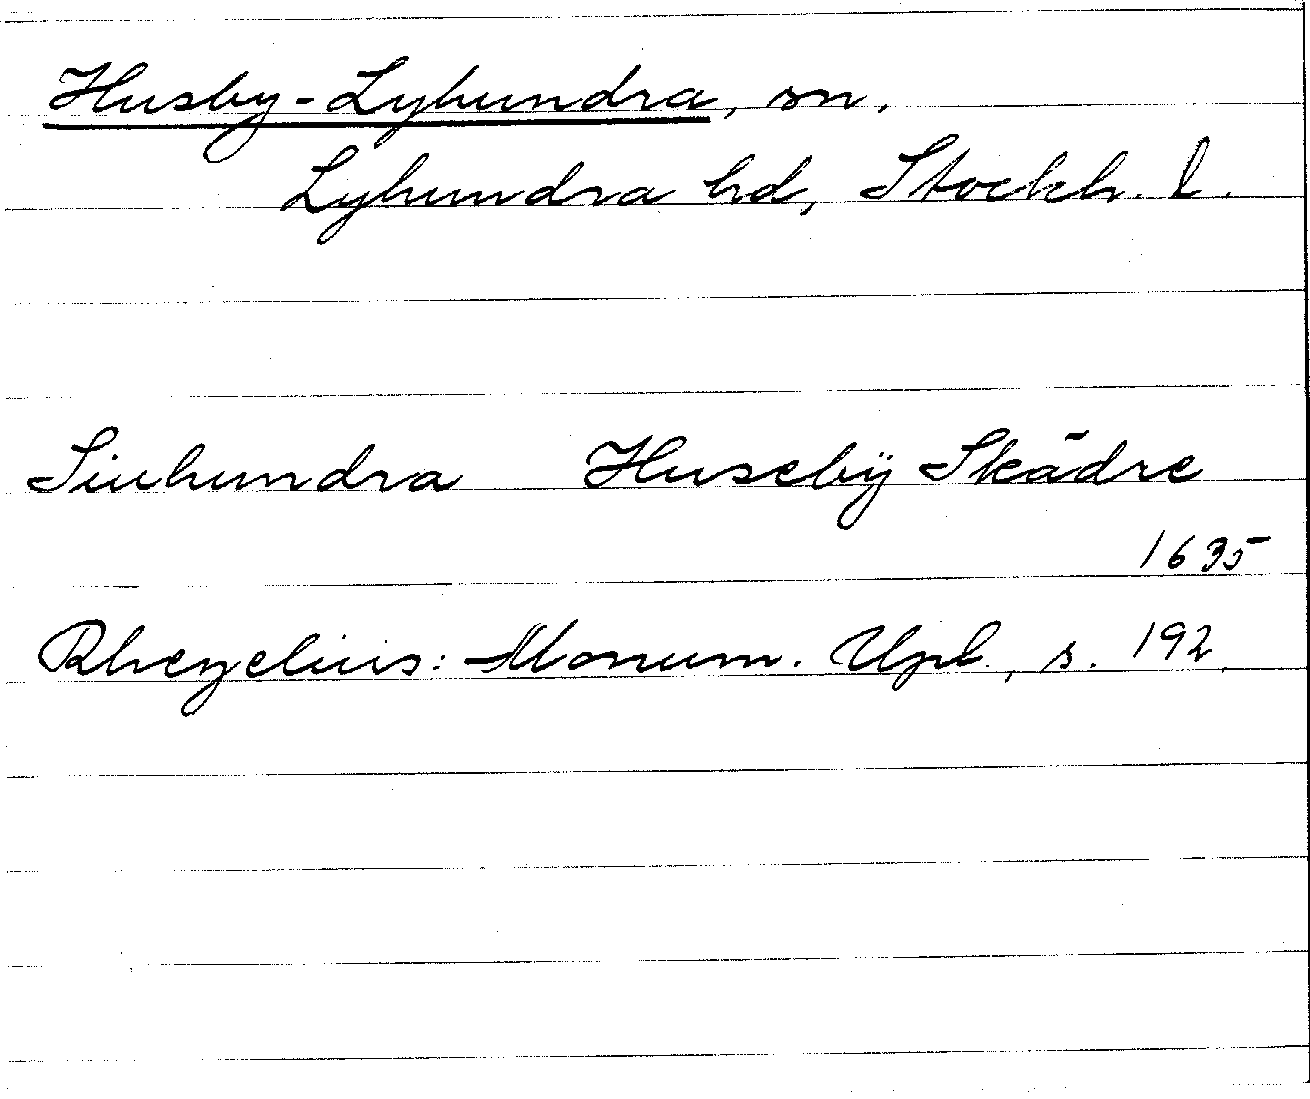 Husby-Lyhundra, sn.
Lyhundra hd, Stockh. l.
Siuhundra Husebÿ Skädre
1635
Rhezelius: Monum. Upl., s. 192.